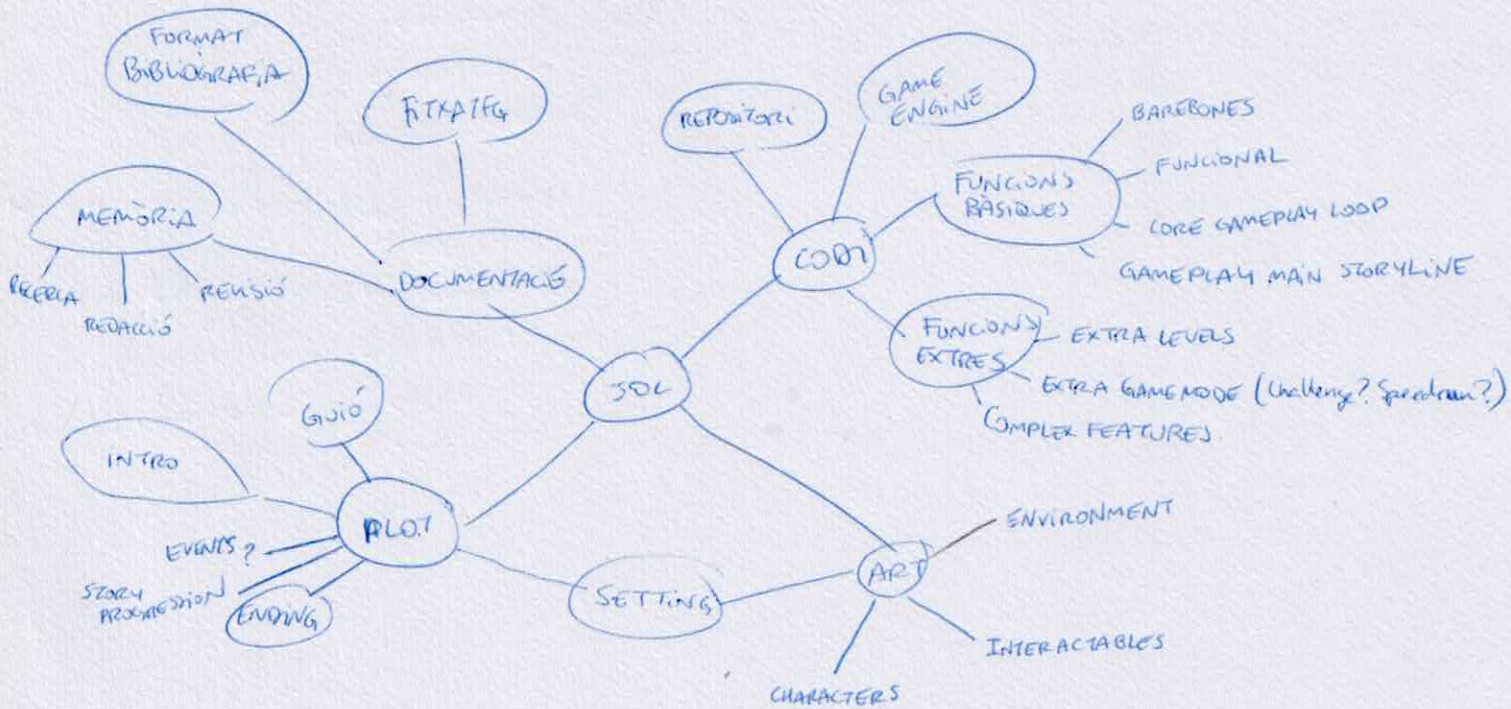 FORMAT
BIBLIOGRAFIA
FITXA TFG
MEMÒRIA
RECERCA
REDACCIÓ
REVISIÓ
DOCUMENTACIÓ
REPOSITORI
GAME
ENGINE
CODI
FUNCIONS
BÀSIQUES
BAREBONES
FUNCIONAL
CORE GAMEPLAY LOOP
GAMEPLAY MAIN STORYLINE
FUNCIONS
EXTRES
EXTRA LEVELS
EXTRA GAMEMODE (Challenge? Speedrun?)
COMPLEX FEATURES
GUIÓ
INTRO
PLOT
EVENTS?
STORY
PROGRESSION
ENDING
SETTING
ART
ENVIRONMENT
INTERACTABLES
CHARACTERS